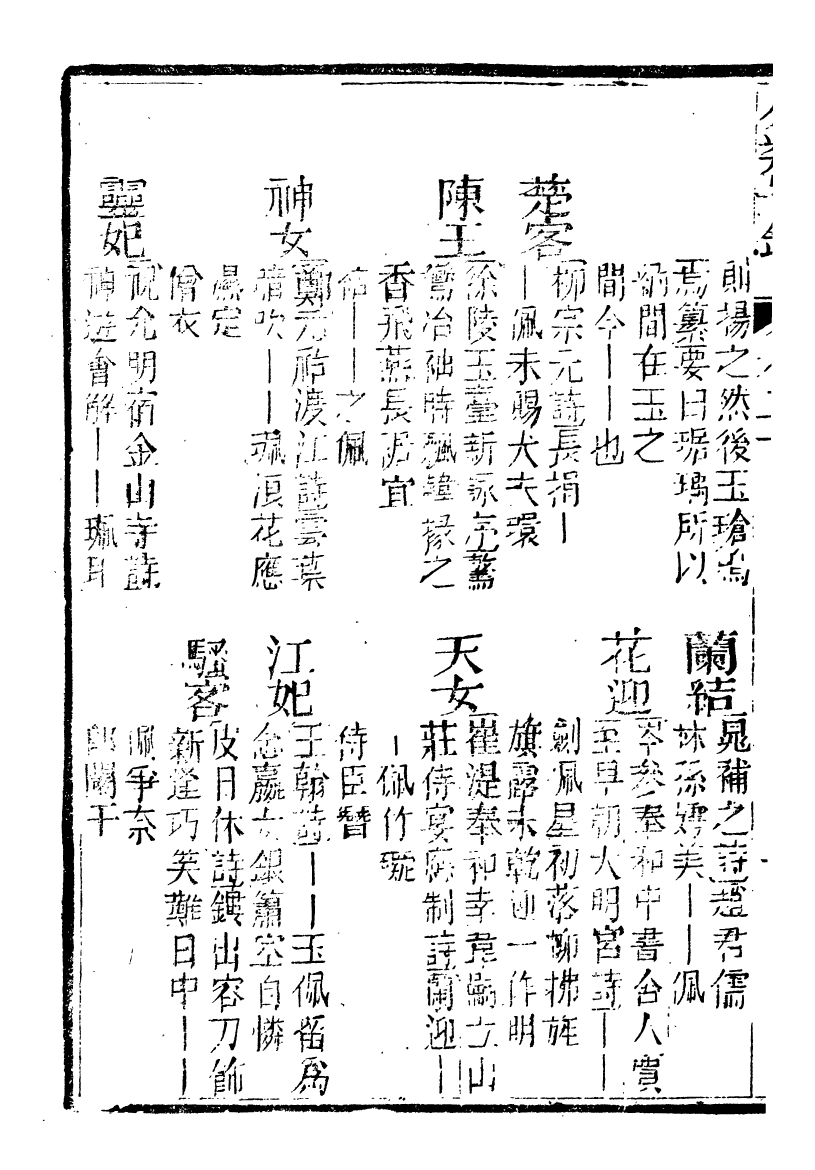 則揚之然後玉瑲焉
焉纂要曰琚瑀所以
納間在玉之
間今——也
楚客
柳宗元詩長捐—
—佩未賜大夫環
陳王
徐陵玉臺新詠序驚
鸞冶袖時飄韓掾之
香飛燕長裾宜
結——之佩
神女
鄭元祐渡江詩雲葉
暗吹——珮浪花應
濕定
僧衣
靈妃
祝允明宿金山寺詩
神遊會解——珮
蘭結
晁補之詩趙君儒
林孫嫮美——佩
花迎
岑參奉和中書舍人賈
至早朝大明宮詩——
劍佩星初落柳拂旌
旗露未乾迎一作明
天女
崔湜奉和幸韋嗣立山
莊侍宴應制詩蘭迎—
—佩竹礙
侍臣簪
江妃
王翰詩——玉佩留爲
念嬴女銀簫空自憐
騷客
皮日休詩鏤出容刀飾
新逢巧笑難日中——
珮爭奈
闌干